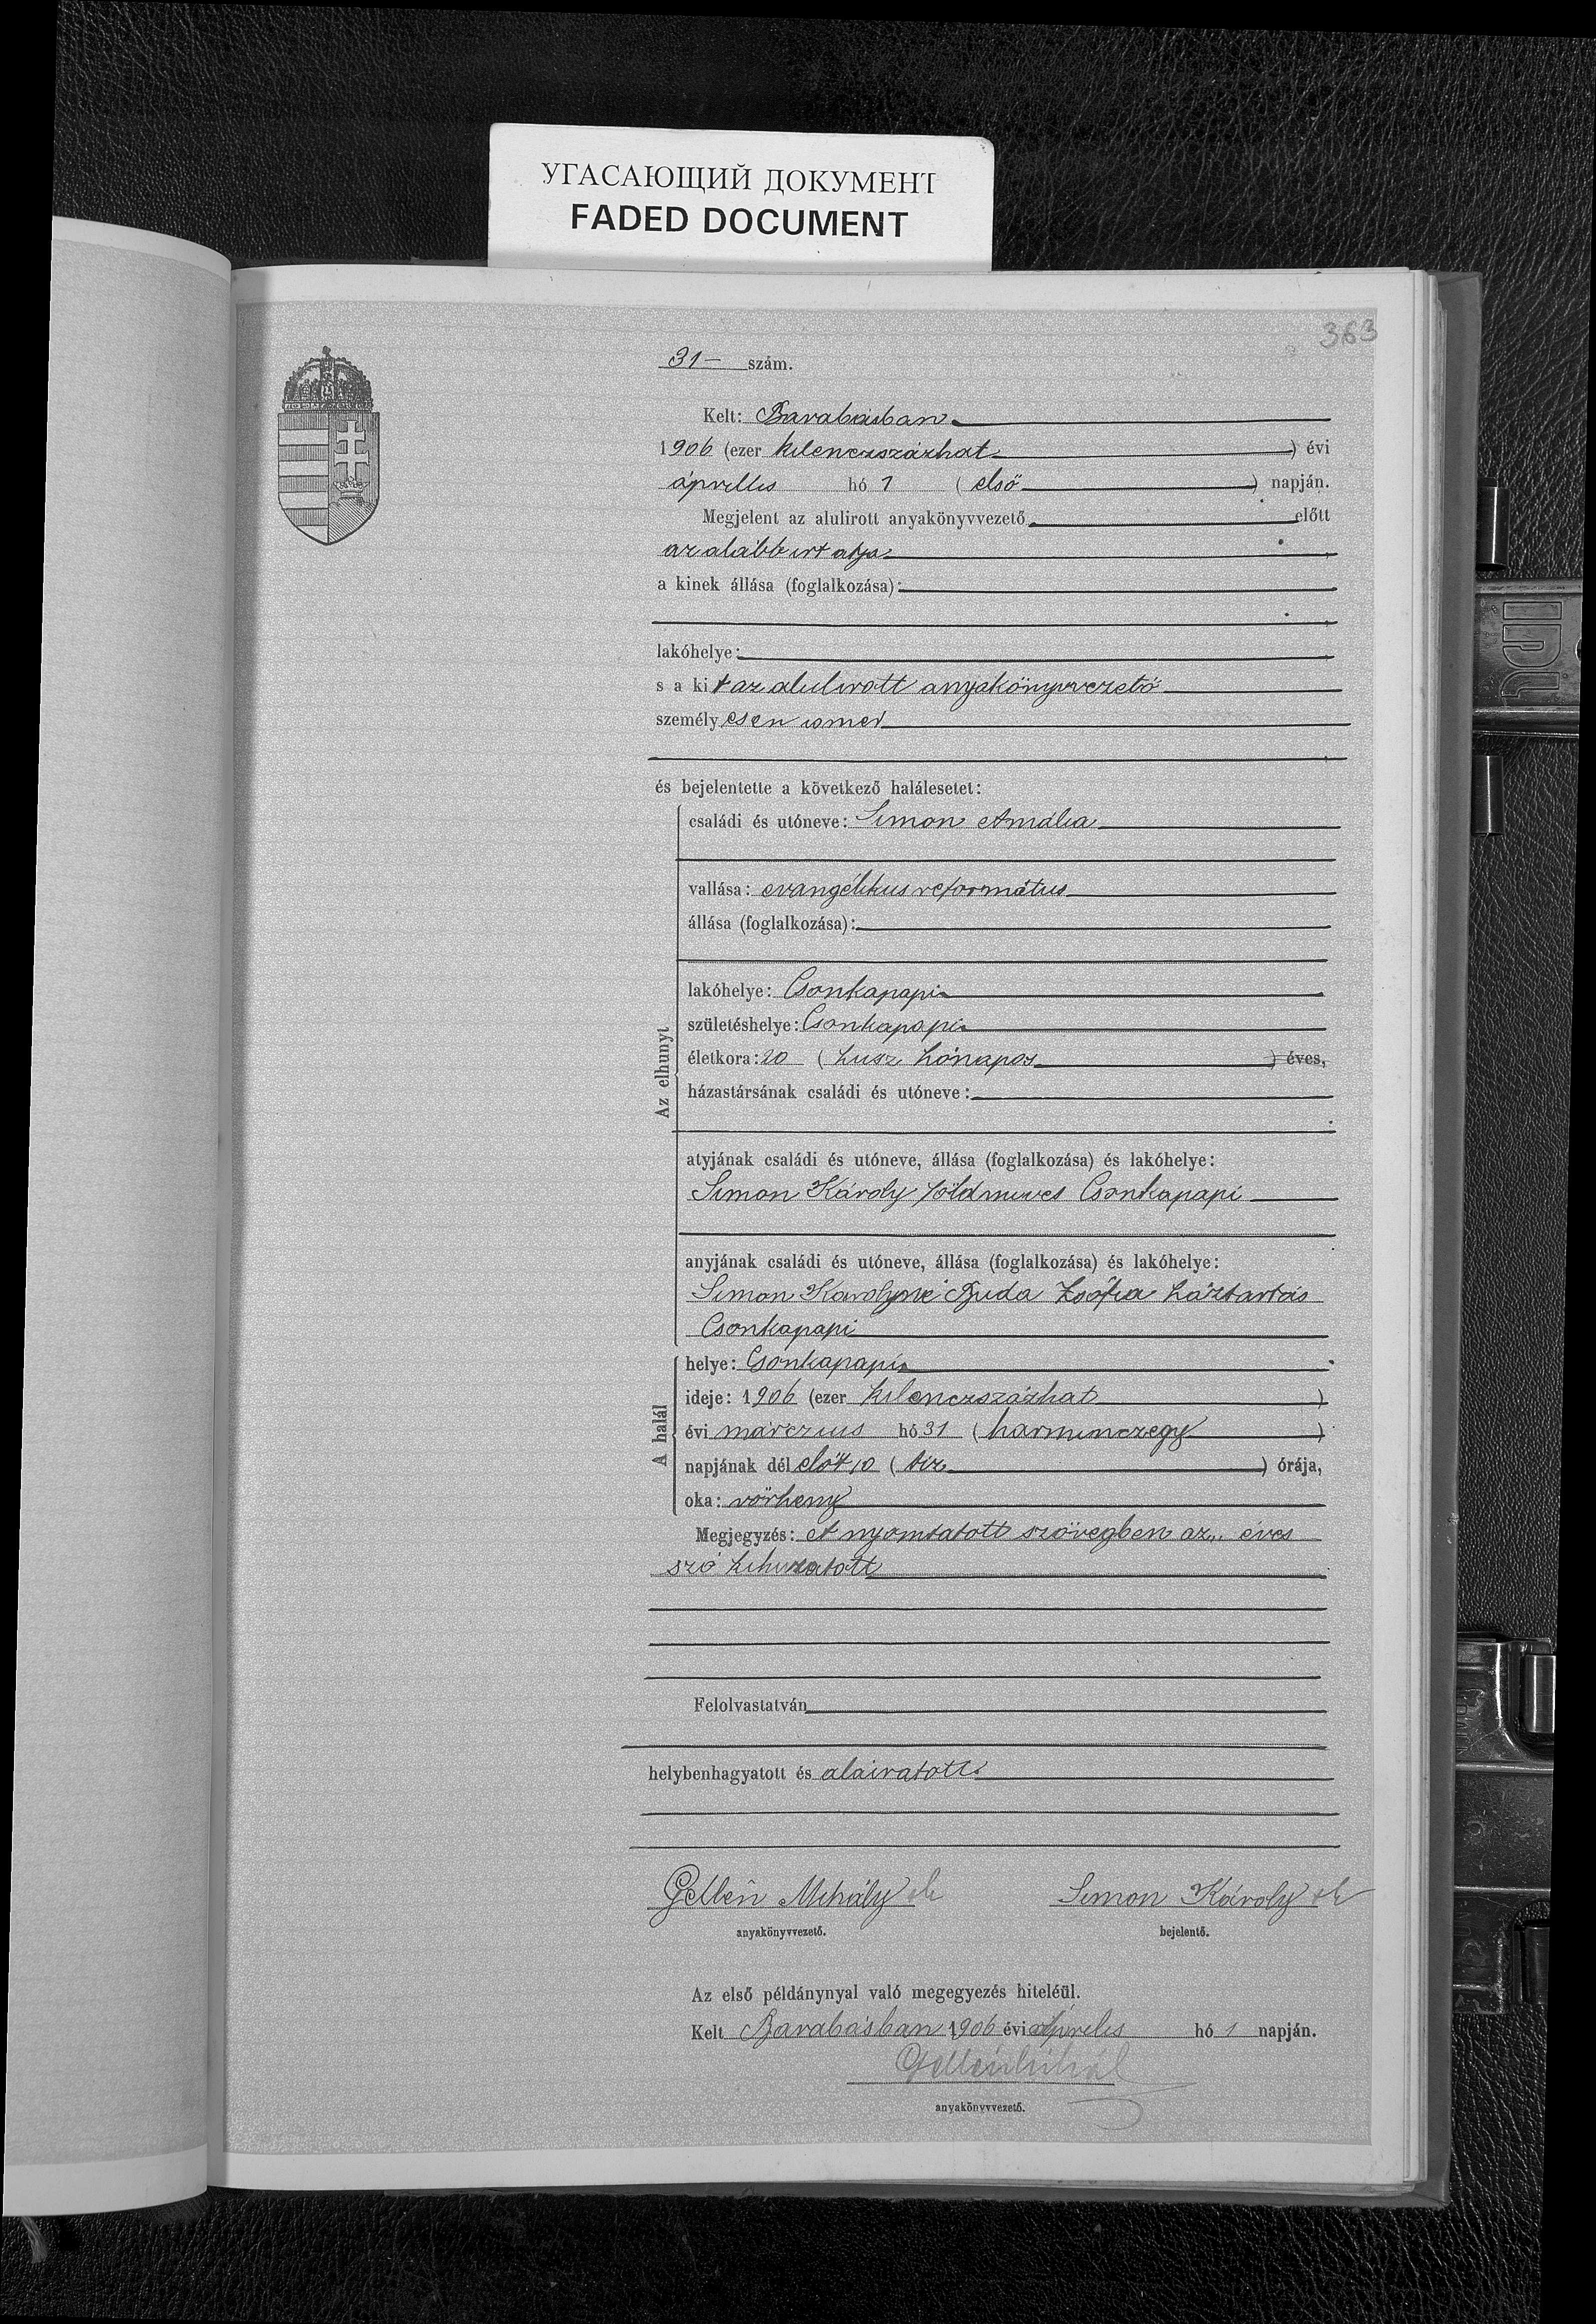 УГАСАЮЩИЙ ДОКУМЕНТ
FADED DOCUMENT
363
31 – szám.
Kelt: Barabásban
1906 (ezer kilenczszázhat ) évi
április hó 1 ( első ) napján.
Megjelent az alulirott anyakönyvvezető előtt
az alább irt atya
a kinek állása (foglalkozása):
lakóhelye:
s a kit az alulirott anyakönyvvezető
személyesen ismer
és bejelentette a következő halálesetet:
Az elhunyt
családi és utóneve: Simon Amália
vallása: evangélikus református
állása (foglalkozása):
lakóhelye: Csonkapapi
születéshelye: Csonkapapi
életkora: 20 ( husz hónapos ) éves,
házastársának családi és utóneve:
atyjának családi és utóneve, állása (foglalkozása) és lakóhelye:
Simon Károly földmives Csonkapapi
anyjának családi és utóneve, állása (foglalkozása) és lakóhelye:
Simon Károlyné Buda Zsófia háztartás
Csonkapapi
A halál
helye: Csonkapapi
ideje: 1906 (ezer kilenczszázhat )
évi márczius hó 31 ( harminczegy )
napjának dél előtt 10 ( tiz ) órája,
oka: vörheny
Megjegyzés: A nyomtatott szövegben az „ éves
szó kihuzatott
Felolvastatván
helybenhagyatott és aláiratott.
Gellén Mihály sk Simon Károly sk
anyakönyvvezető. bejelentő.
Az első példánynyal való megegyezés hiteléül.
Kelt Barabásban 1906 évi április hó 1 napján.
Gellén Mihál
anyakönyvvezető.